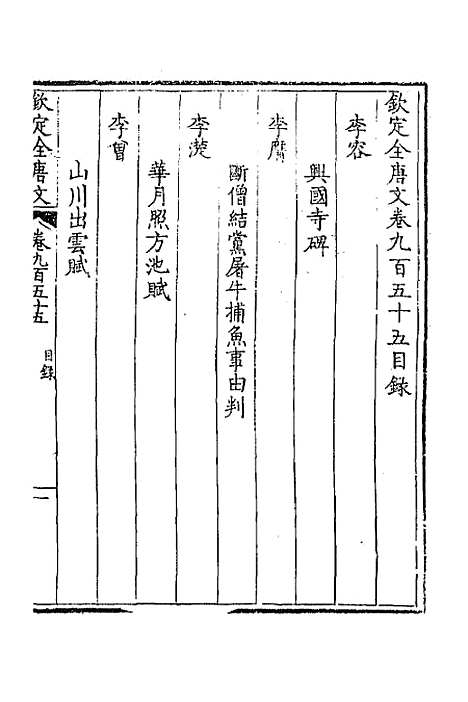 欽定全唐文卷九百五十五目錄
李容
興國寺碑
李膺
斷僧結黨屠牛捕魚事由判
李蒞
華月照方池賦
李曾
山川出雲賦
欽定全唐文
卷九百五十五
目錄
一